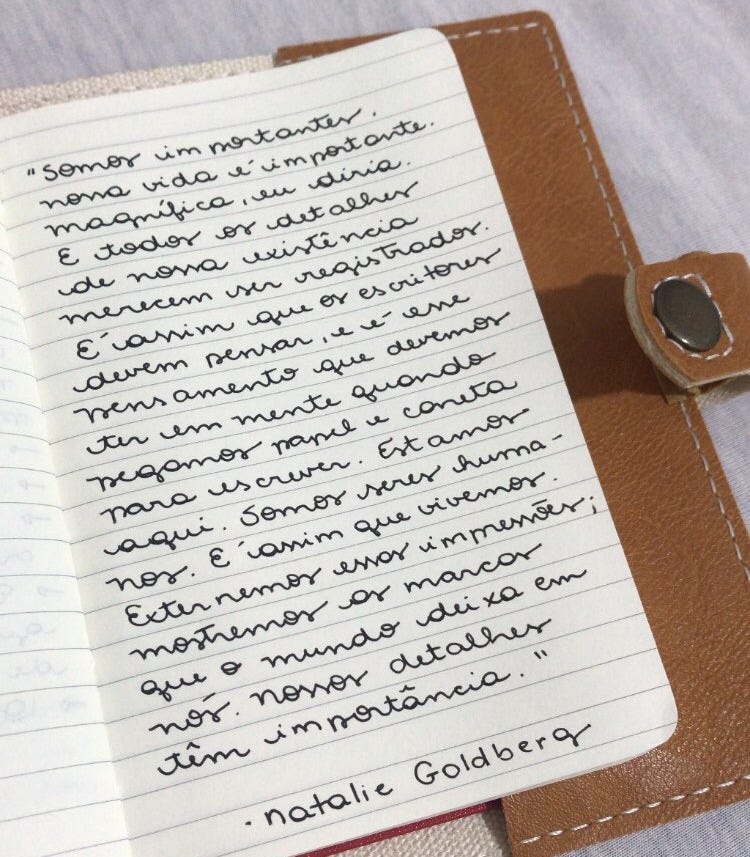 "Somos importantes,
nossa vida é importante.
magnífica, eu diria.
E todos os detalhes
de nossa existência
merecem ser registrados.
É assim que os escritores
devem pensar, e é esse
pensamento que devemos
ter em mente quando
pegamos papel e caneta
para escrever. Estamos
aqui. Somos seres huma-
nos. É assim que vivemos.
Externemos essas impressões;
mostremos as marcas
que o mundo deixa em
nós. nossos detalhes
têm importância."
· natalie Goldberg